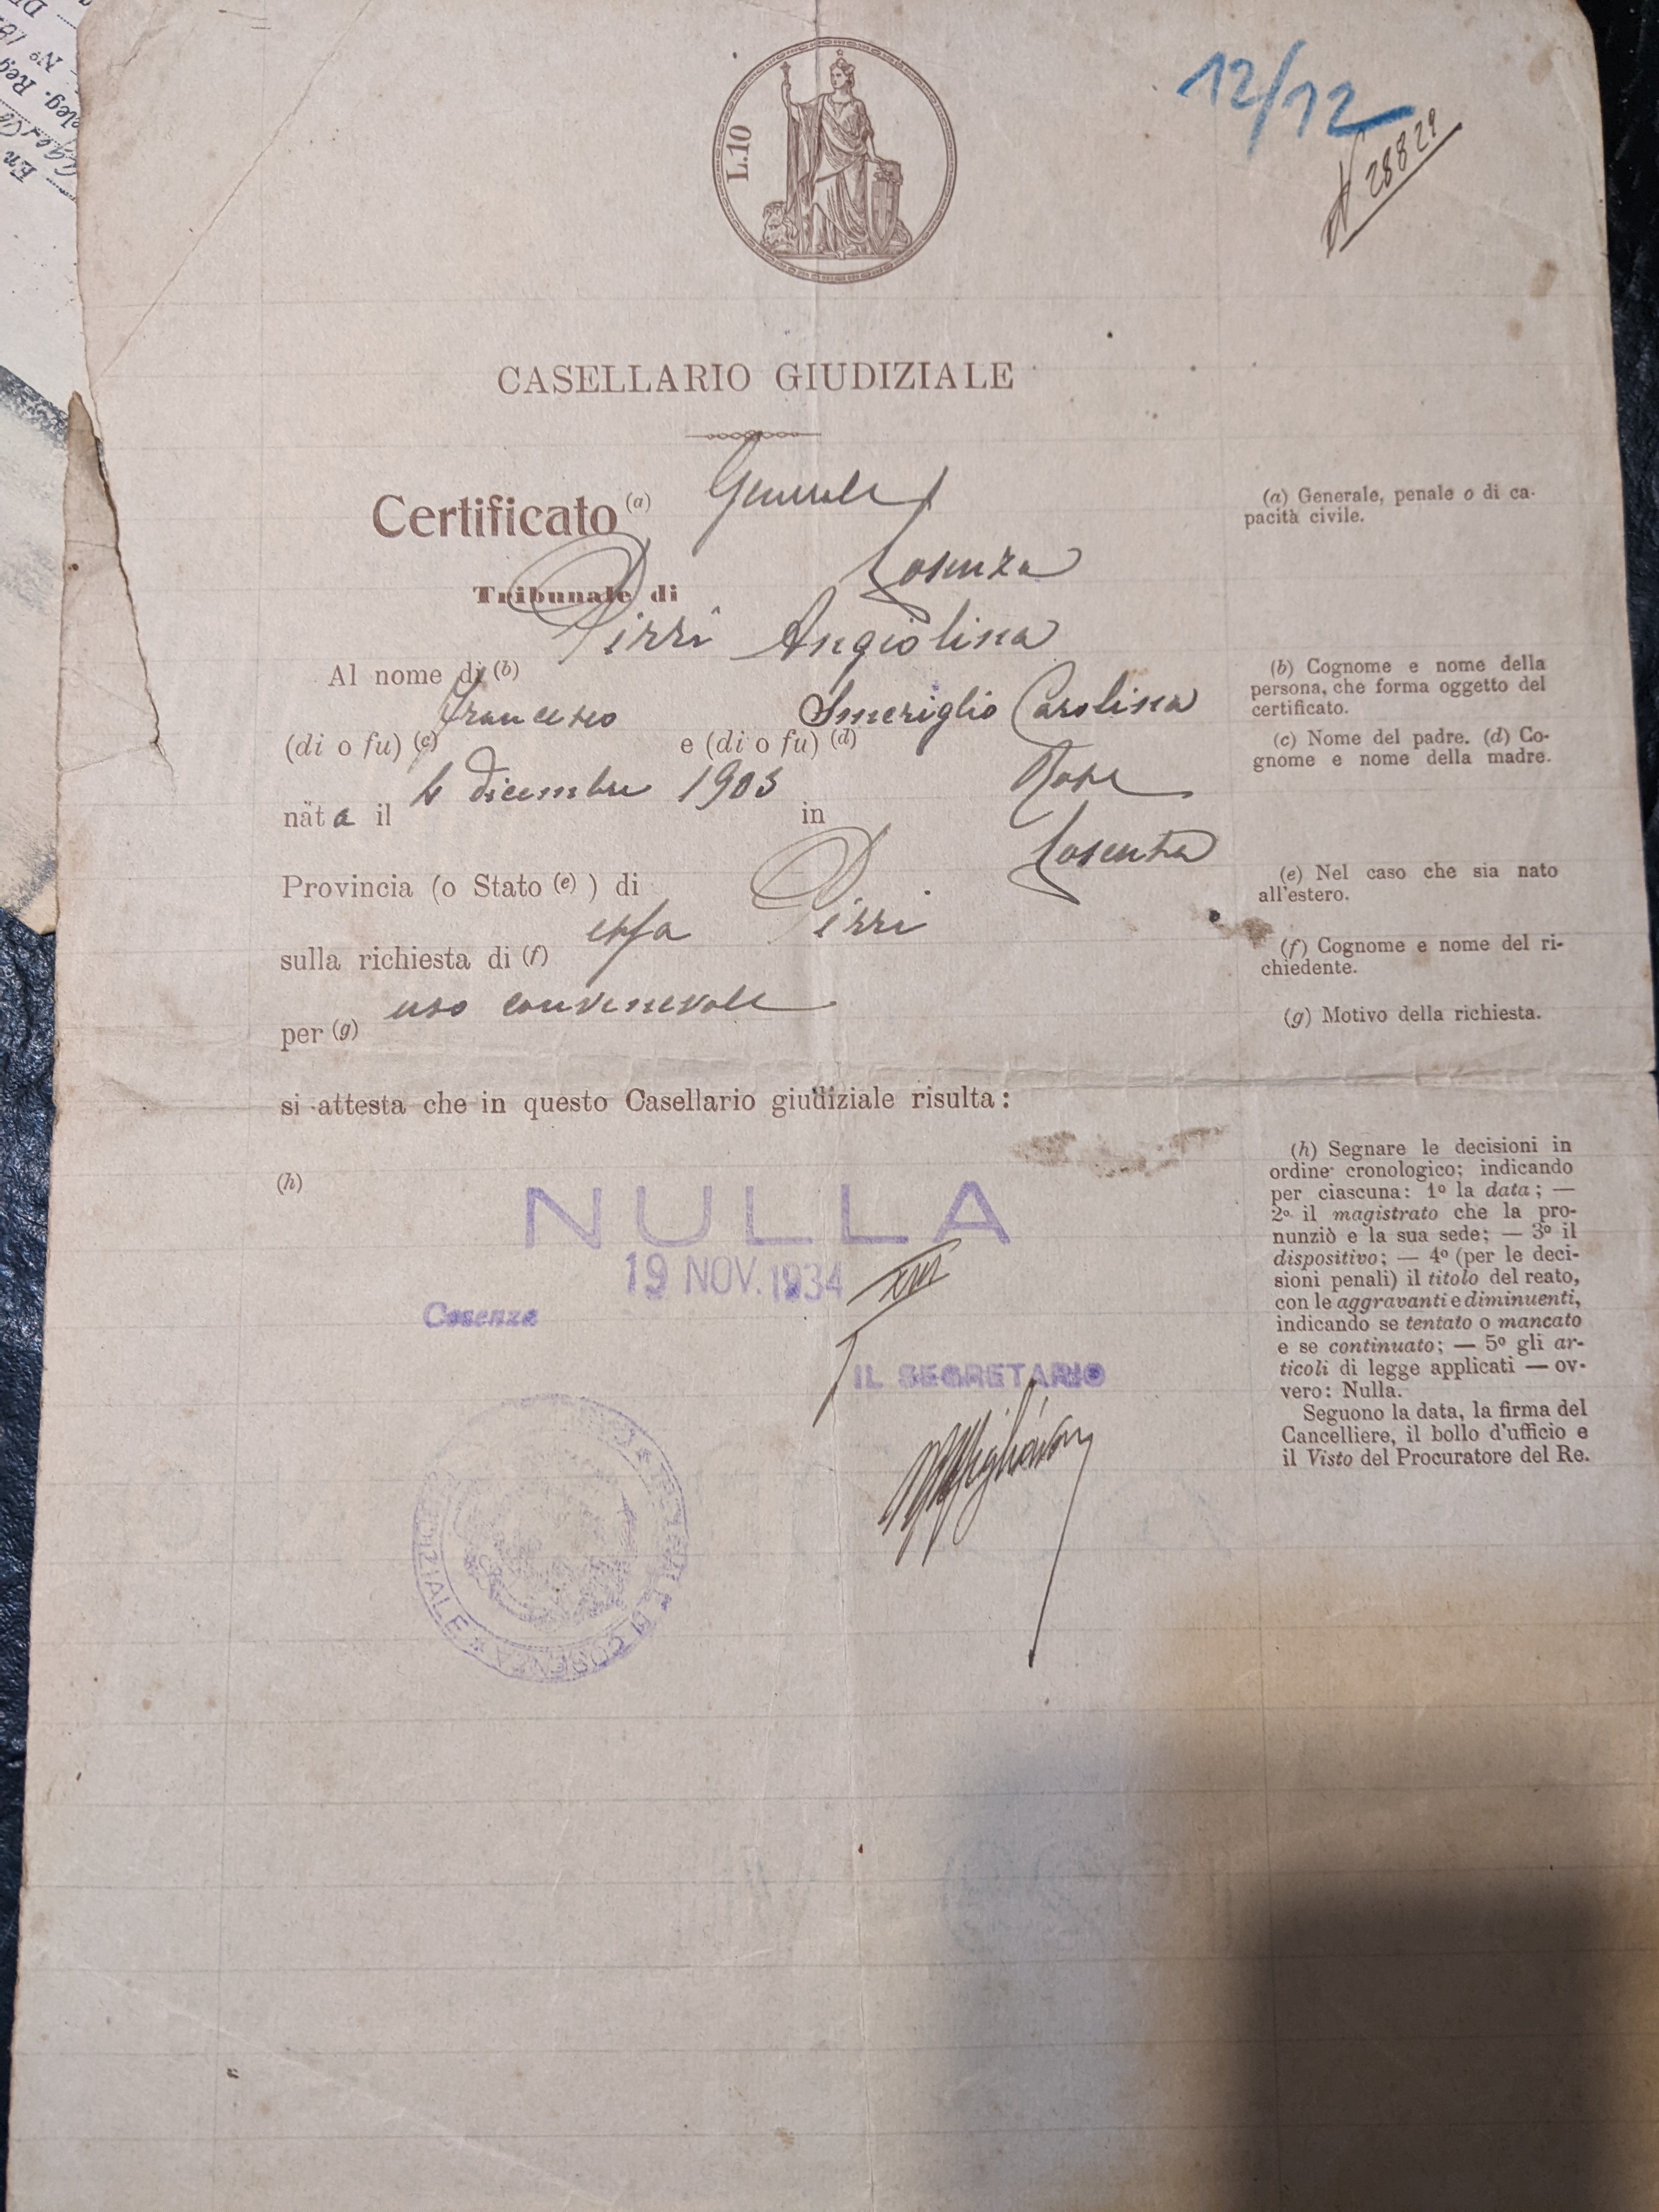 L.10
12/12
N 28829
CASELLARIO GIUDIZIALE
Certificato (a) Generale
Tribunale di Cosenza
Al nome di (b) Pirri Angiolina
(di o fu) (c) Francesco e (di o fu) (d) Smeriglio Carolina
nata il 4 dicembre 1903 in Rose
Provincia (o Stato (e) ) di Cosenza
sulla richiesta di (f) essa Pirri
per (g) uso convenevole
si attesta che in questo Casellario giudiziale risulta:
(h)
NULLA
19 NOV. 1934 XIII
Cosenza
IL SEGRETARIO
COSENZA
(a) Generale, penale o di ca-
pacità civile.
(b) Cognome e nome della
persona, che forma oggetto del
certificato.
(c) Nome del padre. (d) Co-
gnome e nome della madre.
(e) Nel caso che sia nato
all'estero.
(f) Cognome e nome del ri-
chiedente.
(g) Motivo della richiesta.
(h) Segnare le decisioni in
ordine cronologico; indicando
per ciascuna: 1º la data; —
2º il magistrato che la pro-
nunziò e la sua sede; — 3º il
dispositivo; — 4º (per le deci-
sioni penali) il titolo del reato,
con le aggravanti e diminuenti,
indicando se tentato o mancato
e se continuato; — 5º gli ar-
ticoli di legge applicati — ov-
vero: Nulla.
Seguono la data, la firma del
Cancelliere, il bollo d'ufficio e
il Visto del Procuratore del Re.